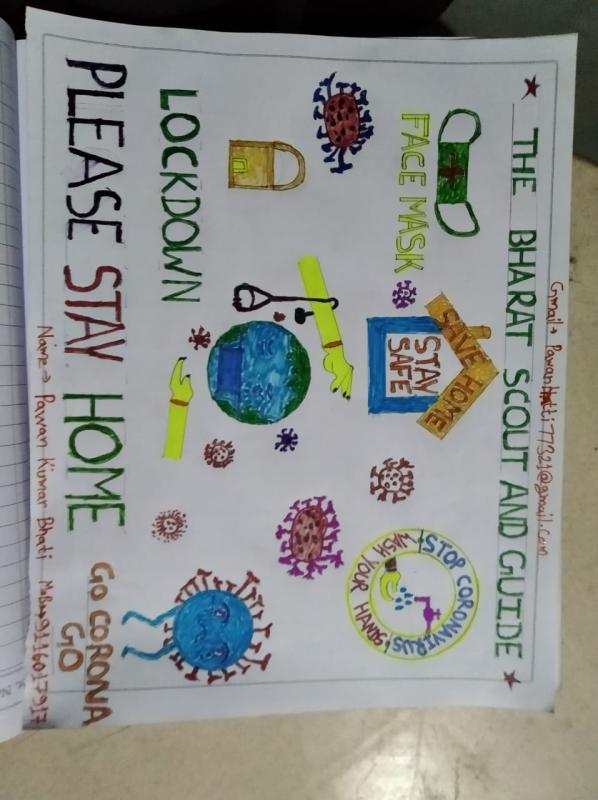 Gmail→
THE BHARAT SCOUT AND GUIDE
FACE MASK
SAVE HOME
STAY
SAFE
STOP CORONAVIRUS
WASH YOUR HANDS
LOCKDOWN
GO CORONA
GO
PLEASE STAY HOME
Name→ Pawan Kumar Bhati